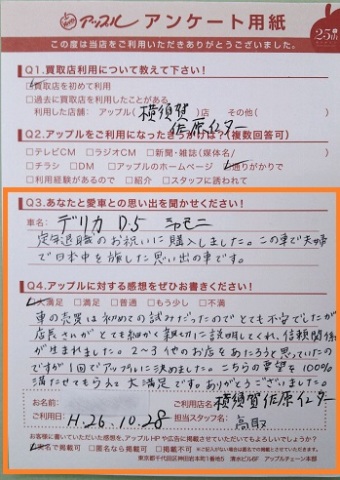 アップル アンケート用紙
25th
この度は当店をご利用いただきありがとうございました。
Q1.買取店利用について教えて下さい!
□買取店を初めて利用
□過去に買取店を利用したことがある
利用した店舗: アップル( 横須賀佐原インター )店 その他( )
Q2.アップルをご利用になったきっかけは?(複数回答可)
□テレビCM □ラジオCM □新聞・雑誌(媒体名/ )
□チラシ □DM □アップルのホームページ □通りがかりで
□利用経験があるので □紹介 □スタッフに誘われて
Q3.あなたと愛車との思い出を聞かせください!
車名: デリカ D.5 三菱
定年退職のお祝いに購入しました。この車で夫婦
で日本中を旅した思い出の車です。
Q4.アップルに対する感想をぜひお書きください!
□大満足 □満足 □普通 □もう少し □不満
車の売買は初めての試みだったのでとても不安でしたが
店長さんがとても細かく親切に説明してくれ、信頼関係
が生まれました。2〜3他のお店をあたろうと思っていたの
ですが1回でアップルに決めました。こちらの要望を100%
満たせてもらえて大満足です。ありがとうございました。
お名前: ご利用店名: 横須賀佐原インター
ご利用日: H.26.10.28 担当スタッフ名: 高取
お客様に書いていただいた感想を、アップルHPや広告に掲載させていただいてもよろしいでしょうか?
□実名で掲載可 □匿名なら掲載可 □掲載不可
東京都千代田区神田岩本町1番地5 清水ビル6F アップルチェーン本部